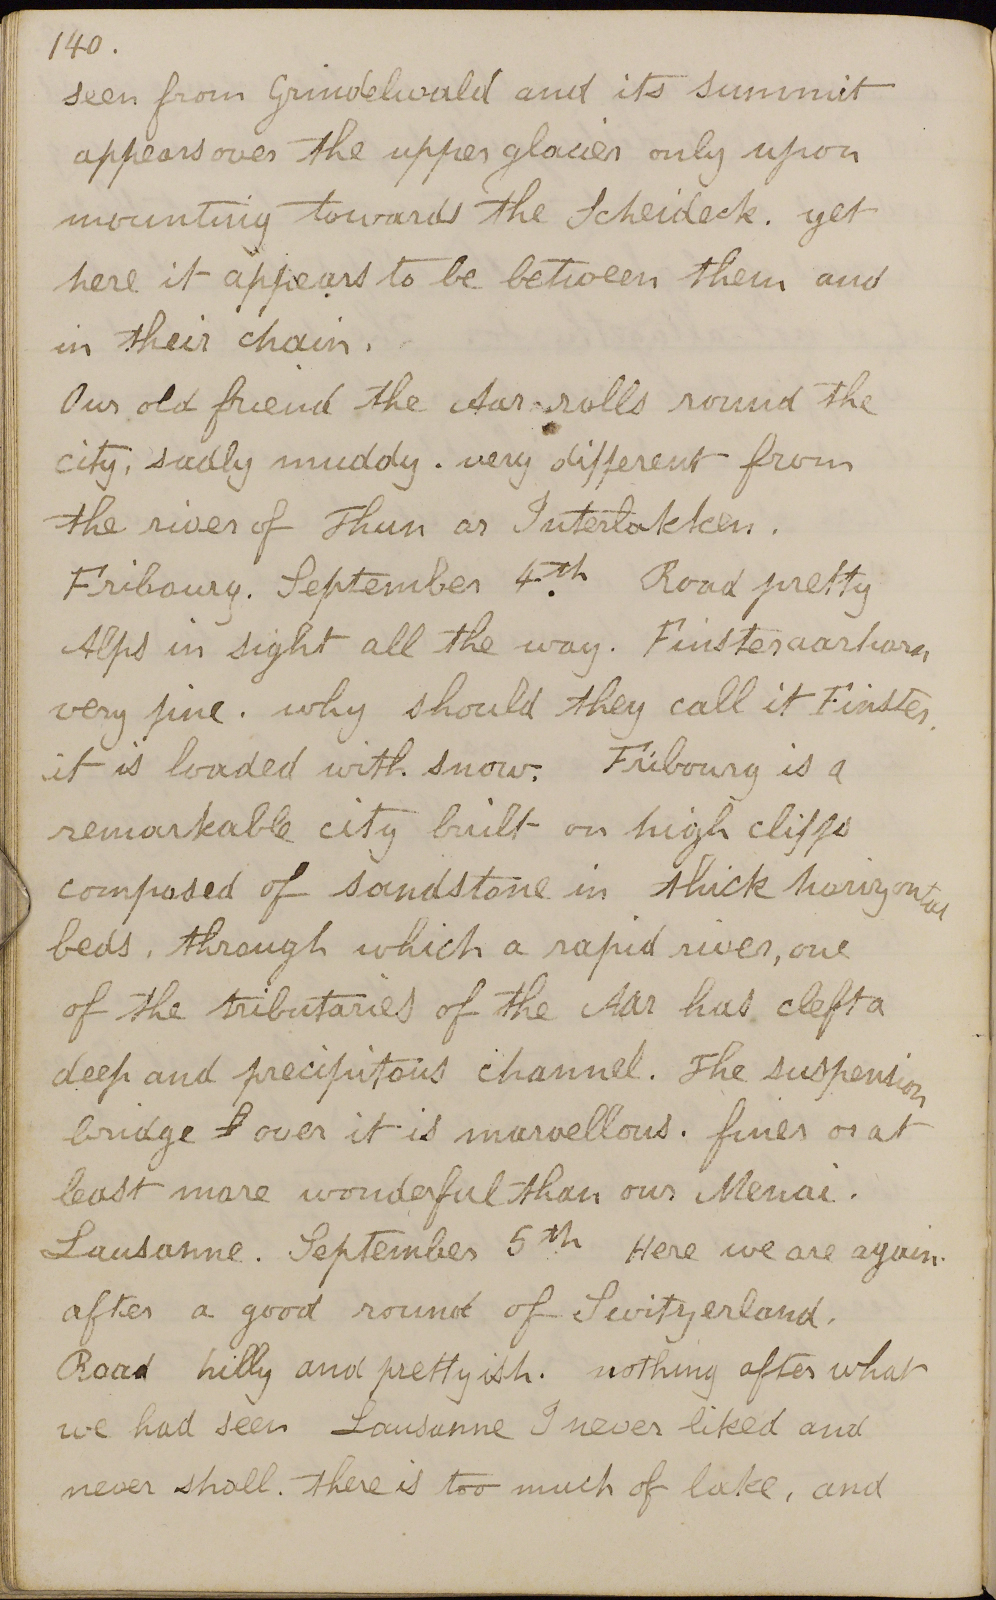 140.
seen from Grindelwald and its summit
appears over the upper glacier only upon
mounting towards the Scheideck. yet
here it appears to be between them and
in their chain.
Our old friend the Aar rolls round the
city, sadly muddy. very different from
the river of Thun or Interlakken.
Fribourg. September 4th. Road pretty
Alps in sight all the way. Finsteraarhorn
very fine. why should they call it Finster.
it is loaded with snow. Fribourg is a
remarkable city built on high cliffs
composed of sandstone in thick horizontal
beds, through which a rapid river, one
of the tributaries of the Aar has cleft a
deep and precipitous channel. The suspension
bridge over it is marvellous. finer or at
least more wonderful than our Menai.
Lausanne. September 5th Here we are again.
after a good round of Switzerland.
Road hilly and prettyish. nothing after what
we had seen Lausanne I never liked and
never shall. there is too much of lake, and